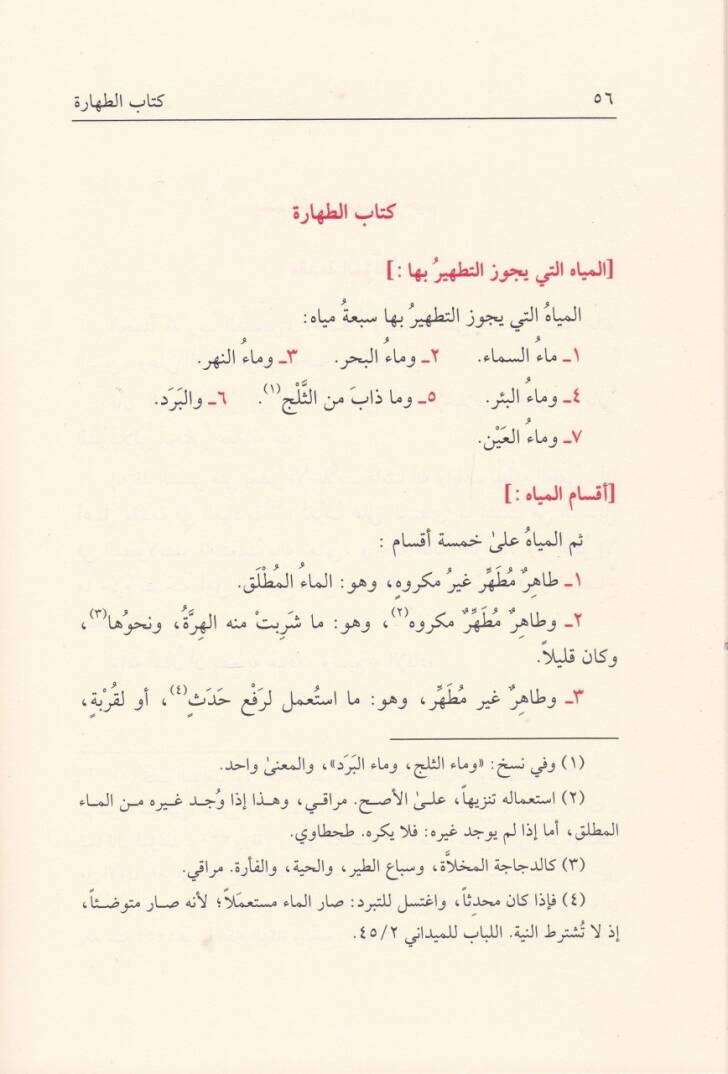 ٥٦ كتاب الطهارة
كتاب الطهارة
[المياه التي يجوز التطهيرُ بها :]
المياهُ التي يجوز التطهيرُ بها سبعةُ مياه:
١ـ ماءُ السماء. ٢ـ وماءُ البحر. ٣ـ وماءُ النهر.
٤ـ وماءُ البئر. ٥ـ وما ذابَ من الثَّلْج(١). ٦ـ والبَرَد.
٧ـ وماءُ العَيْن.
[أقسام المياه :]
ثم المياهُ علىٰ خمسة أقسام :
١ـ طاهِرٌ مُطَهِّر غيرُ مكروهٍ، وهو: الماءُ المُطْلَق.
٢ـ وطاهِرٌ مُطَهِّرٌ مكروه(٢)، وهو: ما شَرِبتْ منه الهِرَّةُ، ونحوُها(٣)،
وكان قليلاً.
٣ـ وطاهِرٌ غير مُطَهِّر، وهو: ما استُعمل لرَفْع حَدَثٍ(٤)، أو لقُرْبةٍ،
(١) وفي نسخ: «وماء الثلج، وماء البَرَد»، والمعنىٰ واحد.
(٢) استعماله تنزيهاً، علىٰ الأصح. مراقي، وهذا إذا وُجد غيره من الماء
المطلق، أما إذا لم يوجد غيره: فلا يكره. طحطاوي.
(٣) كالدجاجة المخلاَّة، وسباع الطير، والحية، والفأرة. مراقي.
(٤) فإذا كان محدِثاً، واغتسل للتبرد: صار الماء مستعمَلاً؛ لأنه صار متوضئاً،
إذ لا تُشترط النية. اللباب للميداني ٤٥/٢.